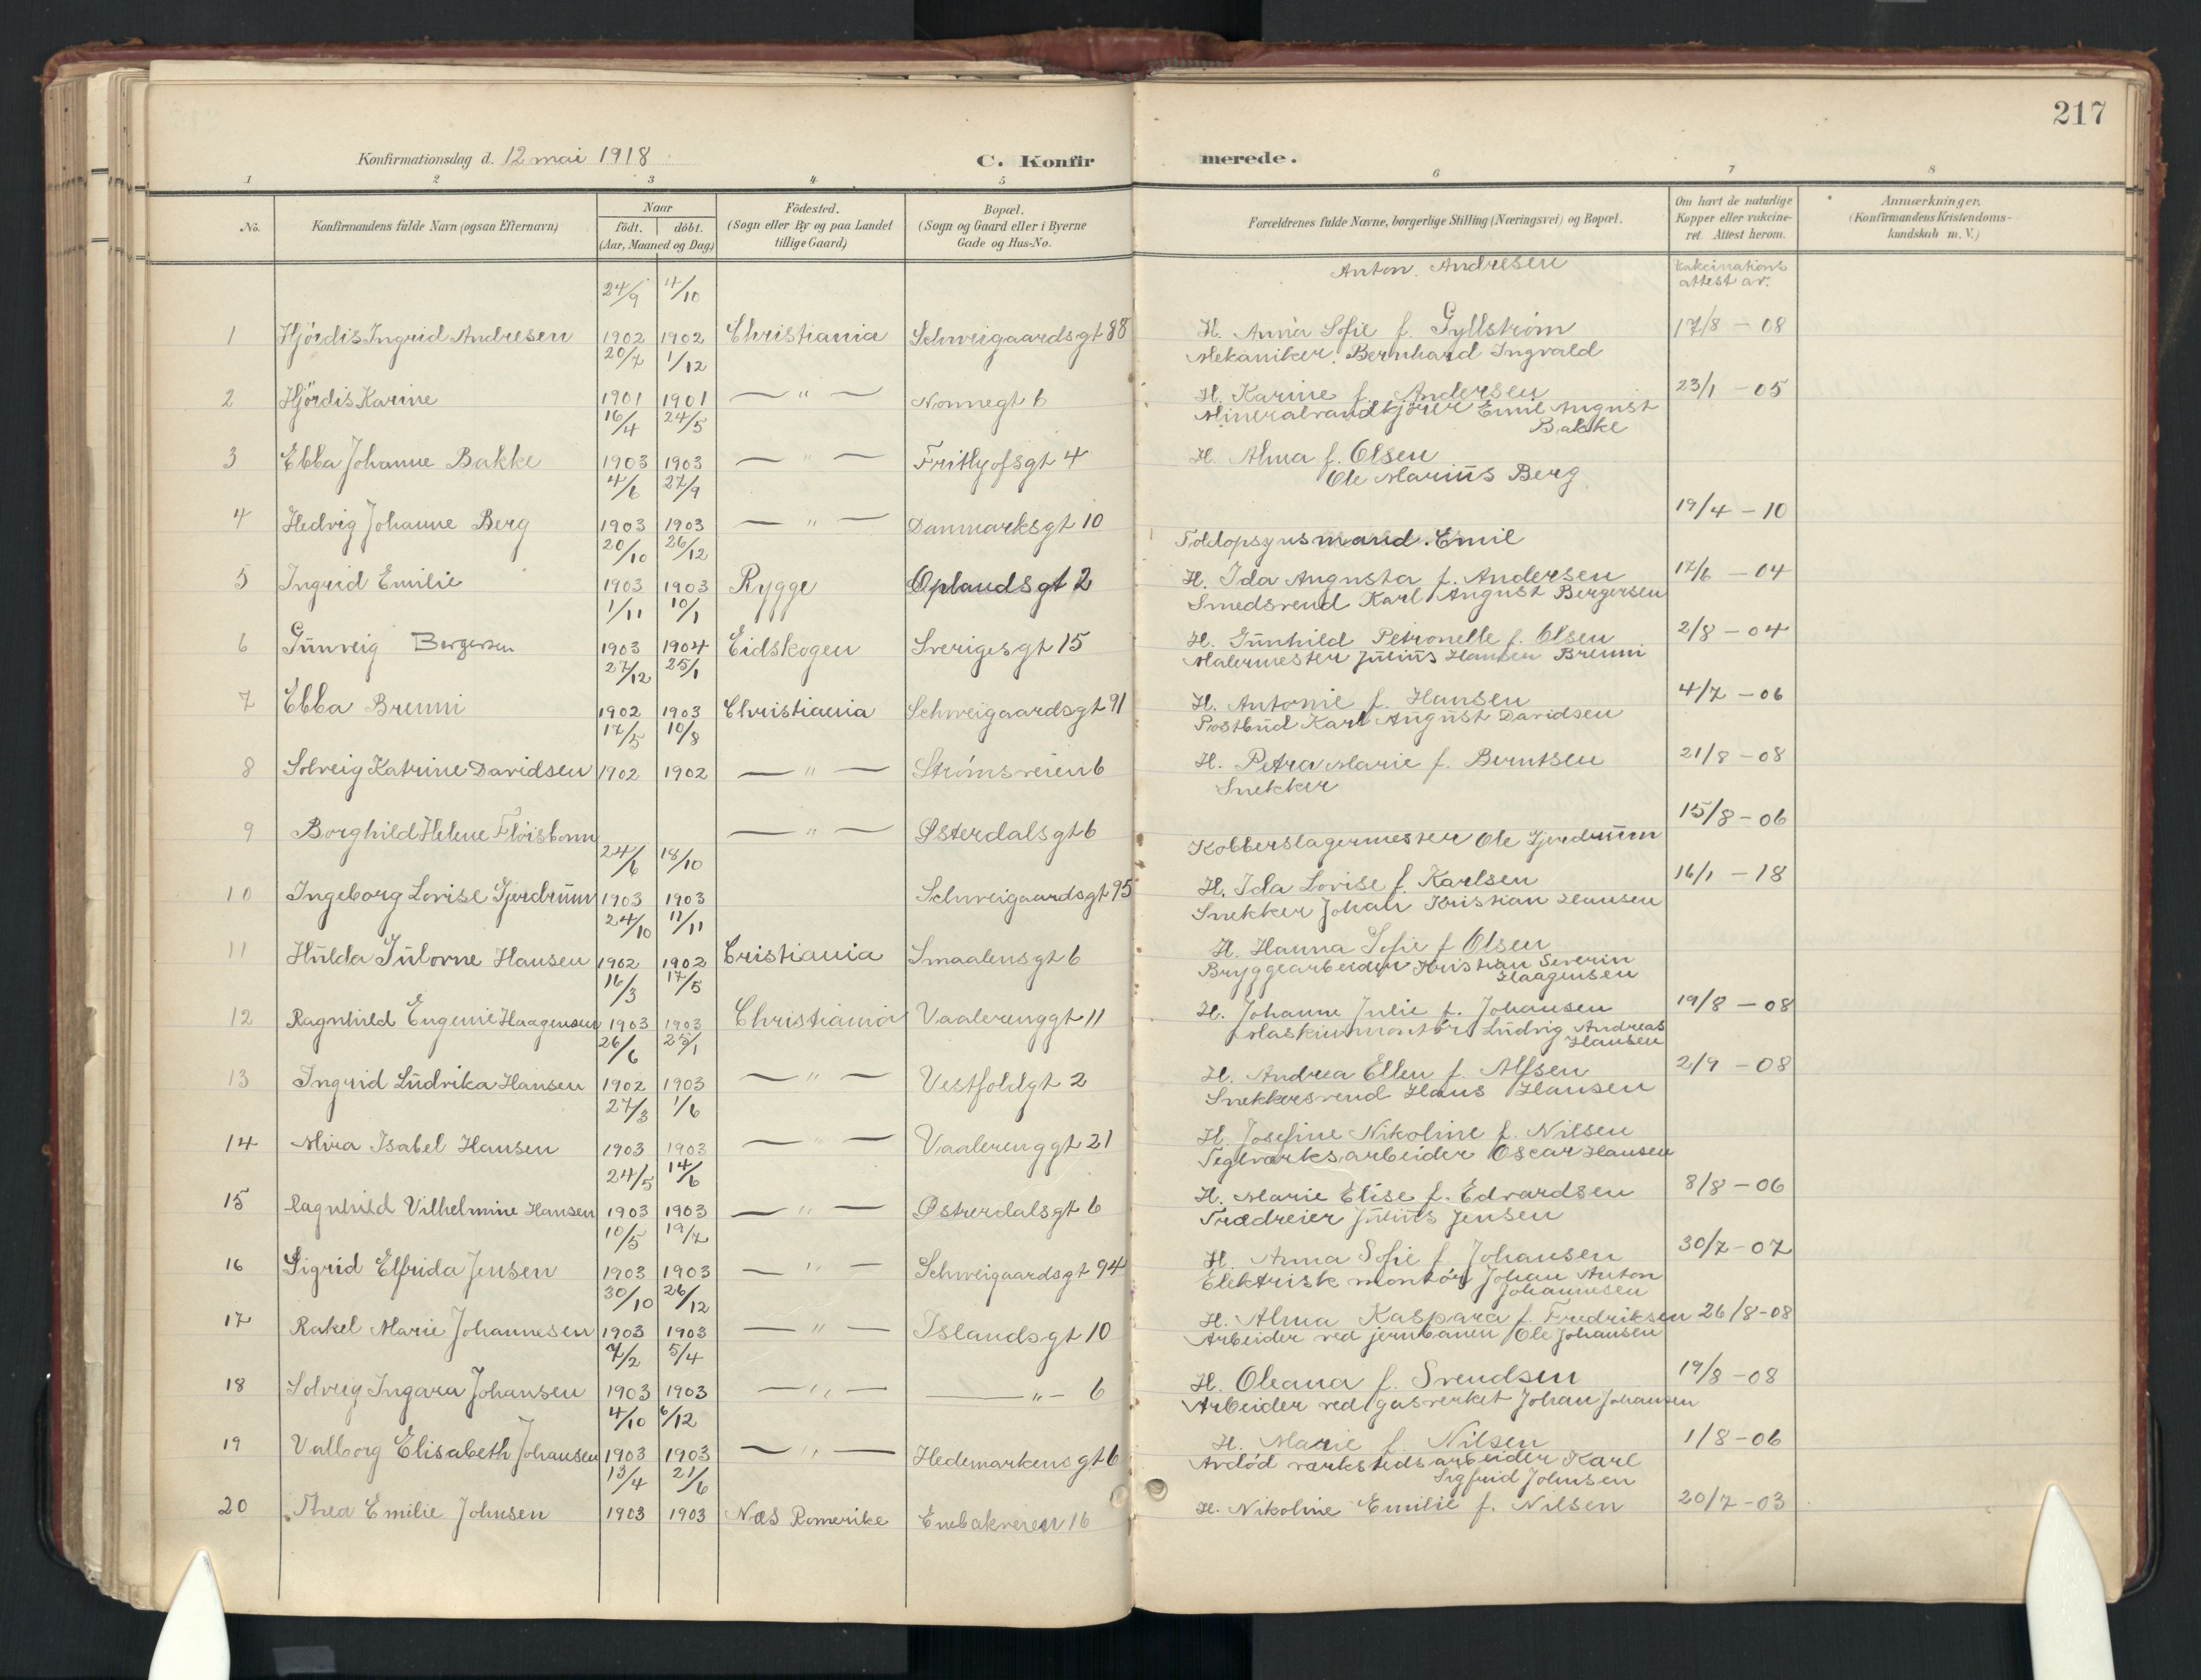 217
Konfirmationsdag d. 12 mai 1918
C. Konfirmerede.
1 2 3 4 5 6 7 8
No.
Konfirmandens fulde Navn (ogsaa Efternavn)
Naar
födt. döbt.
(Aar, Maaned og Dag)
Födested.
(Sogn eller By og paa Landet
tillige Gaard)
Bopæl.
(Sogn og Gaard eller i Byerne
Gade og Hus-No.
Forældrenes fulde Navne, borgerlige Stilling (Næringsvei) og Bopæl.
Om havt de naturlige
Kopper eller vakcine-
ret. Attest herom.
Anmærkninger.
(Konfirmandens Kristendoms-
kundskab m. V.)
24/9 4/10 Anton Andresen Vakcinations
attest av.
1 Hjördis Ingrid Andresen 1902 1902 Christiania Schweigaardsgt 88 H. Anna Sofie f. Gyllström 17/8 - 08
20/7 1/12 Mekaniker Bernhard Ingvald
2 Hjördis Karine 1901 1901 — " — Nonnegt 6 H. Karine f. Andersen 23/1 - 05
16/4 24/5 Mineralvandkjörer Emil August
Bakke
3 Ebba Johanne Bakke 1903 1903 — " — Frithjofsgt 4 H. Alma f. Olsen
4/6 27/9 Ole Marius Berg
4 Hedvig Johanne Berg 1903 1903 — " — Danmarksgt 10 19/4 - 10
20/10 26/12 Toldopsynsmand. Emil
5 Ingrid Emilie 1903 1903 Rygge Oplandsgt 2 H. Ida Augusta f. Andersen 17/6 - 04
1/11 10/1 Smedsvend Karl August Bergersen
6 Gunveig Bergersen 1903 1904 Eidskogen Sverigesgt 15 H. Gunhild Petronelle f. Olsen 2/8 - 04
27/12 25/1 Malermester Julius Hansen Brenni
7 Ebba Brenni 1902 1903 Christiania Schweigaardsgt 91 H. Antonie f. Hansen 4/7 - 06
17/5 10/8 Postbud Karl August Davidsen
8 Solveig Katrine Davidsen 1902 1902 — " — Strömsveien 6 H. Petra Marie f. Berntsen 21/8 - 08
Snekker
9 Borghild Helene Flöisbonn — " — Østerdalsgt 6 15/8 - 06
24/6 18/10 Kobberslagermester Ole Gjerdrum
10 Ingeborg Lovise Gjerdrum 1903 1903 Schweigaardsgt 95 H. Ida Lovise f. Karlsen 16/1 - 18
24/10 17/11 Snekker Johan Kristian Hansen
11 Hulda Gulovne Hansen 1902 1902 Cristiania Smaalensgt 6 H. Hanna Sofie f Olsen
16/3 17/5 Bryggearbeider Kristian Severin
Haagensen
12 Ragnhild Eugenie Haagensen 1903 1903 Christiania Vaalerenggt 11 H. Johanne Julie f. Johansen 19/8 - 08
26/6 25/1 Maskinmontör Ludvig Andreas
Hansen
13 Ingrid Ludvika Hansen 1902 1903 — " — Vestfoldgt 2 H. Andrea Ellen f. Alfsen 2/9 - 08
27/3 1/6 Snekkersvend Hans Hansen
14 Mira Isabel Hansen 1903 1903 — " — Vaalerenggt 21 H. Josefine Nikoline f. Nilsen
24/5 14/6 Teglverksarbeider Oscar Hansen
15 Ragnhild Vilhelmine Hansen 1903 1903 — " — Østerdalsgt 6 H. Marie Elise f. Edvardsen 8/8 - 06
10/5 19/7 Trædreier Julius Jensen
16 Sigrid Elfrida Jensen 1903 1903 — " — Schweigaardsgt 94 H. Anna Sofie f. Johansen 30/7 - 07
30/10 26/12 Elektrisk montör Johan Anton
Johannesen
17 Rakel Marie Johannesen 1903 1903 — " — Islandsgt 10 H. Alma Kaspara f. Fredriksen 26/8 - 08
7/2 5/4 Arbeider ved jernbanen Ole Johansen
18 Solveig Ingara Johansen 1903 1903 — " — — " — 6 H. Oleana f. Svendsen 19/8 - 08
4/10 6/12 Arbeider ved gasverket Johan Johansen
19 Valborg Elisabeth Johansen 1903 1903 — " — Hedemarkensgt 6 H. Marie f. Nilsen 1/8 - 06
13/4 21/6 Avdöd verkstedsarbeider Karl
Sigfrid Johnsen
20 Thea Emilie Johnsen 1903 1903 Næs Romerike Enebakveien 16 H. Nikoline Emilie f. Nilsen 20/7 - 03